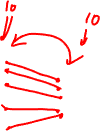 10
10